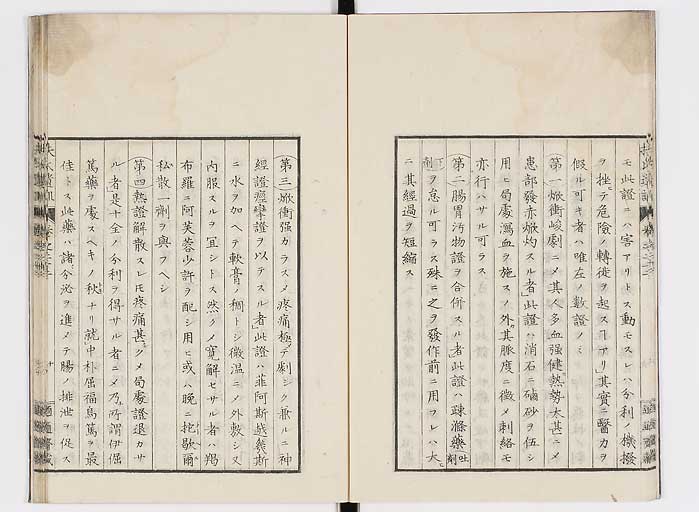 モ此證ニハ害アリトス動モスレハ分利ノ機撥
ヲ挫テ危險ノ轉徙ヲ起スヿアリ其實ニ醫力ヲ
假ル可キ者ハ唯左ノ數證ノミ
第一焮衝峻劇ニメ其人多血强健熱勢太甚ニメ
患部發赤焮灼スル者此證ハ消石ニ磠砂ヲ伍シ
用ヒ局處瀉血ヲ施スノ外其脈度ニ徵メ刺絡モ
亦行ハサル可ラス
第二腸胃汚物證ヲ合併スル者此證ハ疎滌藥吐下
劑ヲ怠ル可ラス殊ニ之ヲ發作前ニ用フレハ大
ニ其經過ヲ短縮ス
第三焮衝强カラスメ疼痛極テ劇シク兼ルニ神
經證痙攣證ヲ以テスル者此證ハ菲阿斯越幾斯
ニ水ヲ加ヘテ軟膏ノ稠トシ微温ニメ外敷シ又
内服スルヲ宜シトス然クメ寛解セサル者ハ羯
布羅ニ阿芙蓉少許ヲ配シ用ヒ或ハ晩ニ抱歇爾
私散一劑ヲ與フヘシ
第四熱證解散スレ𪜈疼痛甚クメ局處證退カサ
ル者是十全ノ分利ヲ得サル者ニメ乃所謂伊倔
篤藥ヲ處スヘキノ秋ナリ就中朴屈福烏篤ヲ最
佳トス此藥ハ諸分泌ヲ進メテ腸ノ排泄ヲ促ス